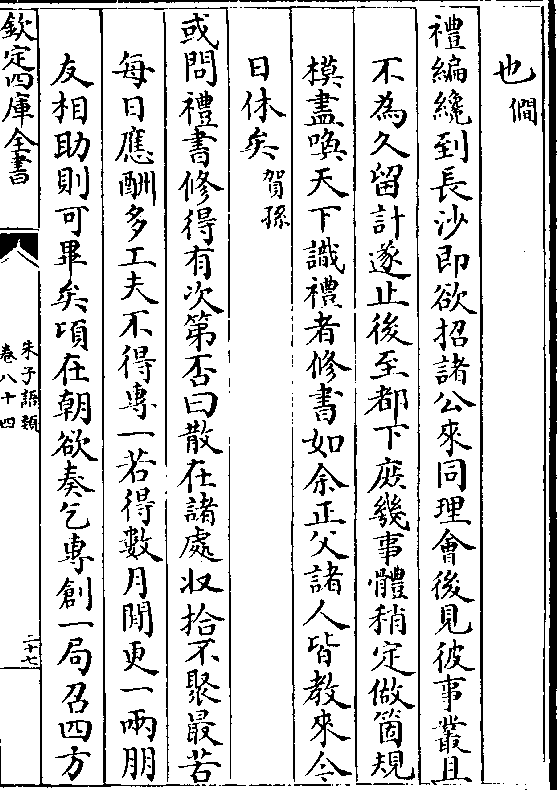 也僩
禮編纔到長沙即欲招諸公來同理會後見彼事叢且
不為久留計遂止後至都下庶幾事體稍定做箇規
模盡喚天下識禮者修書如余正父諸人皆教來今
日休矣賀孫
或問禮書修得有次第否曰散在諸處收拾不聚最苦
每日應酬多工夫不得專一若得數月閒更一兩朋
友相助則可畢矣頃在朝欲奏乞專創一局召四方
欽定四庫全書
朱子語類
卷八十四
二十七